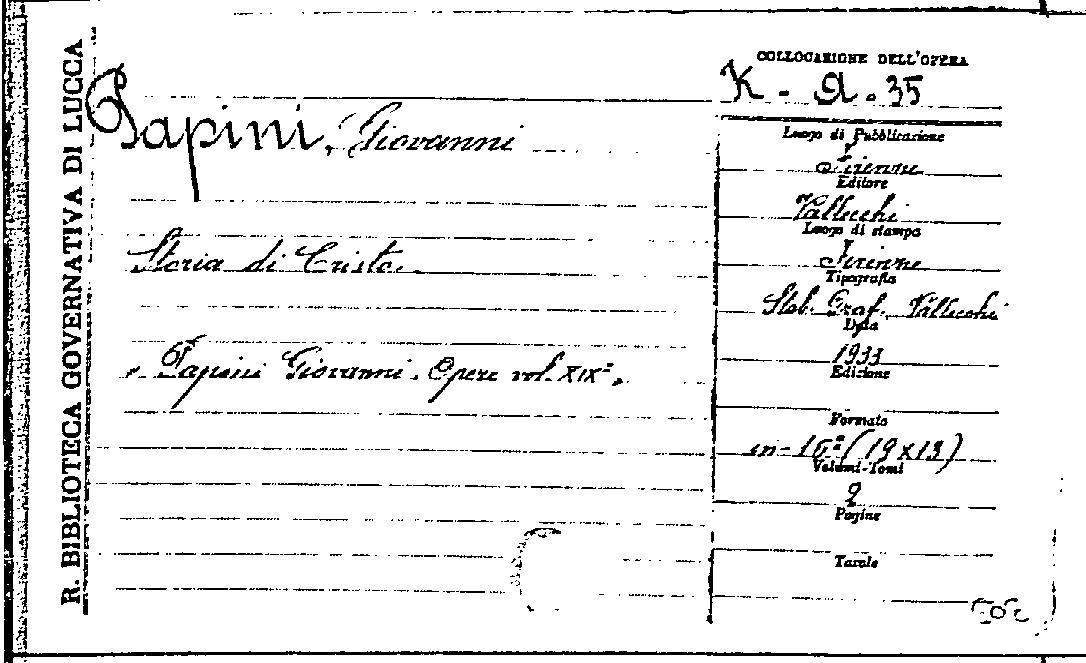 R. BIBLIOTECA GOVERNATIVA DI LUCCA
Papini, Giovanni
Storia di Cristo.
"Papini Giovanni. Opere vol. XIXº"
COLLOCAZIONE DELL'OPERA
K - A. 35
Luogo di Pubblicazione
Firenze
Editore
Vallecchi
Luogo di stampa
Firenze
Tipografia
Stab. Graf. Vallecchi
Data
1933
Edizione
Formato
in-16º (19x13)
Volumi-Tomi
2
Pagine
Tavole